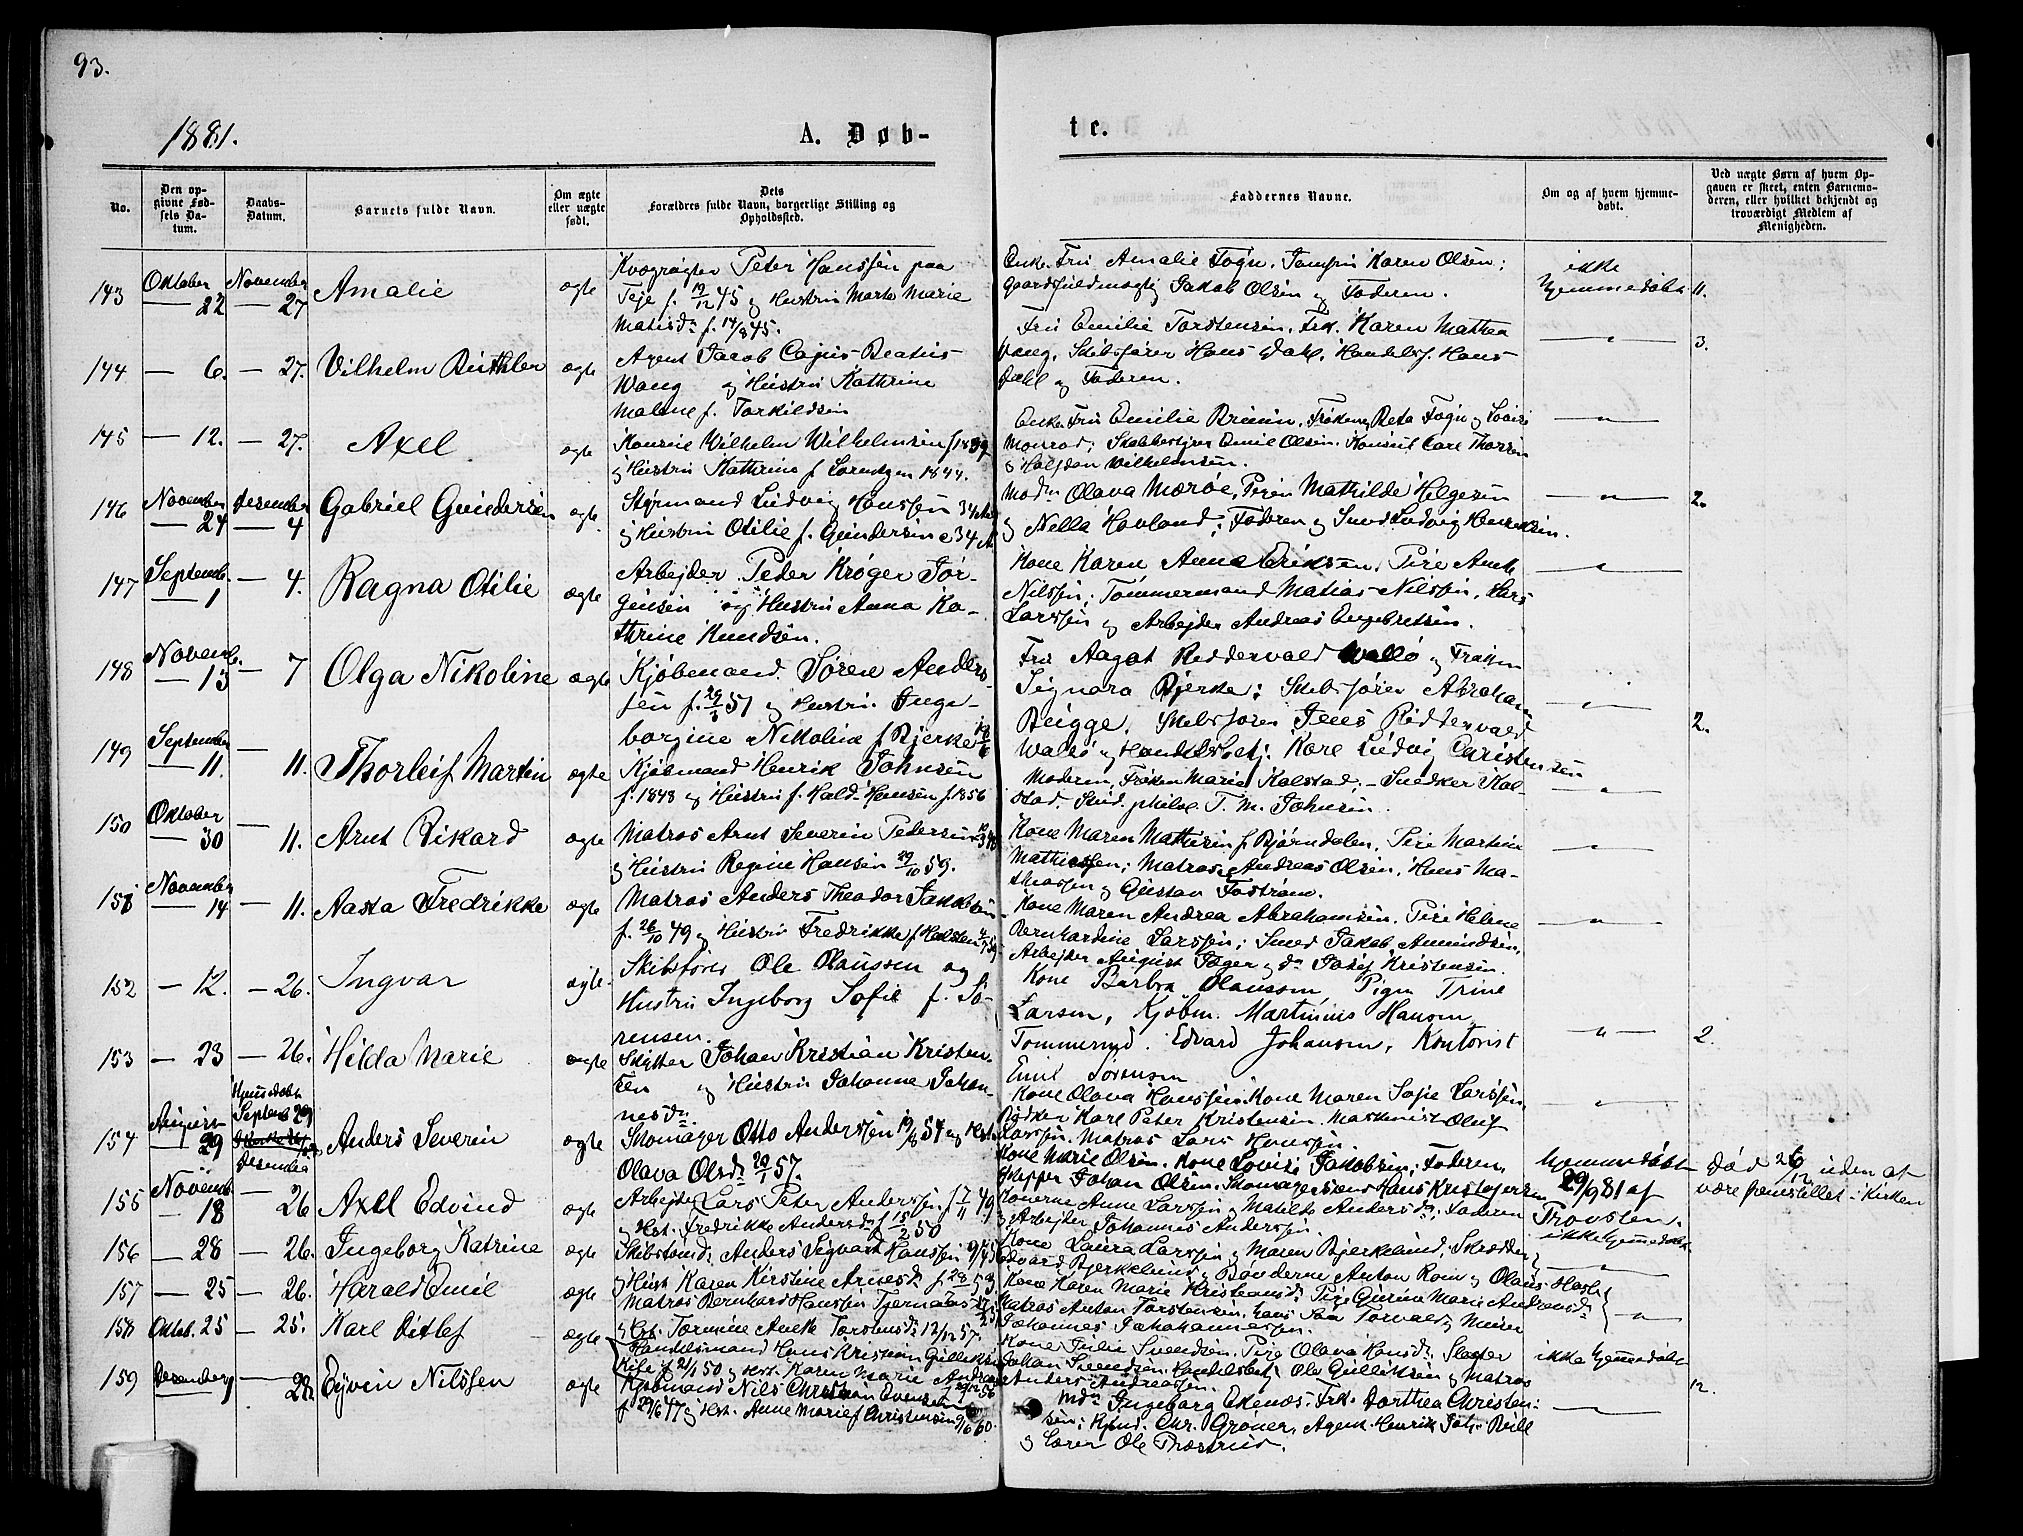 93.
1881.
A. Døb-
te.
No.
Den op-
givne Fød-
sels Da-
tum.
Daabs-
Datum.
Barnets fulde Navn.
Om ægte
eller uægte
født.
Dets
Forældres fulde Navn, borgerlige Stilling og
Opholdssted.
Faddernes Navne.
Om og af hvem hjemme-
døbt.
Ved uægte Børn af hvem Op-
gaven er skeet, enten Barnemo-
deren, eller hvilket bekjendt og
troværdigt Medlem af
Menigheden.
143 Oktober 22 November 27 Amalie ægte
Kvægrøgter Peter Hanssen paa
Teje f. 19/12 45 og Hustru Marte Marie
Matisdr f. 14/8 45.
Enke Fru Amalie Fogn, Jomfru Karen Olsen;
Gaardsfuldmægtig Jakob Olsen og Faderen.
ikke
hjemmedøbt
11.
144 — 6. — 27. Vilhelm ægte
Agent Jacob Cajus Beatus
Wang og Hustru Kathrine
Malene f. Torkildsen
Fru Emilie Torstensen, Frk. Karen Mathea
Vang, Skibsfører Hans Dahl, Handelsf. Hans
Dahl og Faderen.
— " —
3.
145 — 12. — 27. Axel ægte
Konsul Wilhelm Wilhelmsen f 1839
og Hustru Kathrine f Lorentzen 1844.
Enke Fru Emilie Bruun, Frøken Beta Fogn og Lovise
Monrad; Skibbestyrer Emil Olsen, Konsul Carl Thorsen
og Halfdan Wilhelmsen.
— " —
146 November 24 Desember 4 Gabriel Gundersen ægte.
Styrmand Ludvig Hanssen 34
og Hustru Otilie f. Gundersen 34
Modn Olava Marøe, Pigen Mathilde Helgesen
og Nella Hovland; Faderen og Smed Ludvig Henriksen.
— " —
2.
147 Septemb. 1 — 4. Ragna Otilie ægte
Arbejder Peder Krøger Jør-
gensen og Hustru Anna Ka-
thrine Knudsen.
Kone Karen Anne Eriksen, Pige Anne
Nilssen; Tømmermand Matias Nilssen, Lars
Larssen og Arbejder Andreas Engebretsen.
— " —
148 Novemb. 13 — 7 Olga Nikoline ægte
Kjøbmand Søren Anders-
sen f. 29/3 51 og Hustru Inge-
borgine Nikoline f Bjerke
Fru Aagot Reddervald Wallø og Frøken
Signora Bjerke; Skibsfører Abraham
Bugge, Skibsfører Jens Riddervald
Wallø og Handelsbetj. Karl Ludvig Christensen
— " —
2.
149 September 11. — 11. Thorleif Martin ægte
Kjøbmand Henrik Johnsen
f. 1848 og Hustru f. Hald Hansen f. 1856
Moderen, Frøken Maria Kalstad; — Snedker Kal-
stad, Stud. philol T. M. Johnsen.
— " —
150 Oktober 30 — 11. Arnt Rikard ægte
Matros Arnt Severin Pedersen
og Hustru Regine Hansen 29/10 59.
Kone Maren Mathisen f Bjørndalen, Pige Martine
Mathiassen; Matros Andreas Olsen, Hans Ma-
thiassen og Gustav Fostrøm.
— " —
151 November 14 — 11. Aasta Fredrikke ægte
Matros Anders Theodor Jakobsen
f. 26/10 49 og Hustru Fredrikke f Halsten
Kone Maren Andrea Abrahamsen, Pige Helene
Bernhardine Larssen; Smed Jakob Amundsen,
Arbejder August Jæger og dn Josef Kristensen.
— " —
152 — 12. — 26. Ingvar ægte.
Skibsfører Ole Olaussen og
Hustru Ingeborg Sofie f. Sø-
rensen.
Kone Barbra Olaussen Pigen Trine
Larsen, Kjøbm. Martinius Hansen
Tommerud. Edvard Johansen, Kontorist
Emil Sørensen
— " —
2.
153 — 23 — 26. Hilda Marie ægte
Skytter Johan Kristian Kristen-
sen og Hustru Johanne Johan-
nesdr
Kone Olava Hanssen, Kone Maren Sofie Larssen,
Bødker Karl Peter Kristensen, Maskinist Oluf
Larssen, Matros Lars Hanssen.
— " —
154 August 29 Hjemmedøbt Septemb 29 Desember Anders Severin ægte
Skomager Otto Anderssen 54 og Hst.
Olava Olsdr 20/1 57.
Kone Marie Olsen, Kone Lovise Jakobsen; Faderen,
Johan Olsen, Skomagersvend Hans Kristofersen
Hjemmedøbt
29/9 81 af
Provsten.
Død 26/12 uden at
være fremstillet i Kirken
155 Novemb 18 — 26 Axel Edvind ægte
Arbejder Lars Peter Anderssen f 7/11 49.
og Hst. Fredrikke Andersdr f 15/2 50
Konerne Anne Larssen og Matilde Andersdr; Faderen
og Arbejder Johannes Anderssen.
ikke hjemmedøbt
156 — 28 — 26. Ingeborg Katrine ægte
Skibstømdr Anders Sigvart Hanssen
og Hust Karen Kirstine Arnesdr f 28/5 53.
Kone Laura Larssen og Maren Bjerkelund; Skrædder
Edvard Bjerkelund og Bønderne Anton Rom og Olaus Hasle
— " —
157 — 25 — 26. Harald Emil ægte
Matros Bernhard Hanssen Tjernaas
og Hst. Tormine Anette Torstensdr 12/12 57.
Kone Karen Marie Kristiansdr Pige Gurine Marie Andreasdr
Matros Anton Torstensen, Torvald Meier
Johannes Johannessen.
— " —
158 Oktob. 25 — 25. Karl Ditlef ægte
Handelsmand Hans Kristian Gulliksen
f 21/1 50 og Hst. Karen Marie
Kone Julie Svendsen, Pige Olava Hansdr Slagter
Johan Svendsen, Handelsbetj. Ole Gulliksen og Matros
Anders Andreassen.
ikke hjemmedøbt
159 Desember 1 — 28. Eyvin Nilssen ægte
Kjøbmand Nils Christian Evensen
f 29/6 47 og Hst. Anne Marie f Christensen 9/6 60.
Mdn Ingeborg Ekenæs, Frk. Dorthea Christen-
sen; Kjbmd. Chr. Grøner, Agent Henrik Joh. Bull
og Lærer Ole Thostrud.
— " —
12.